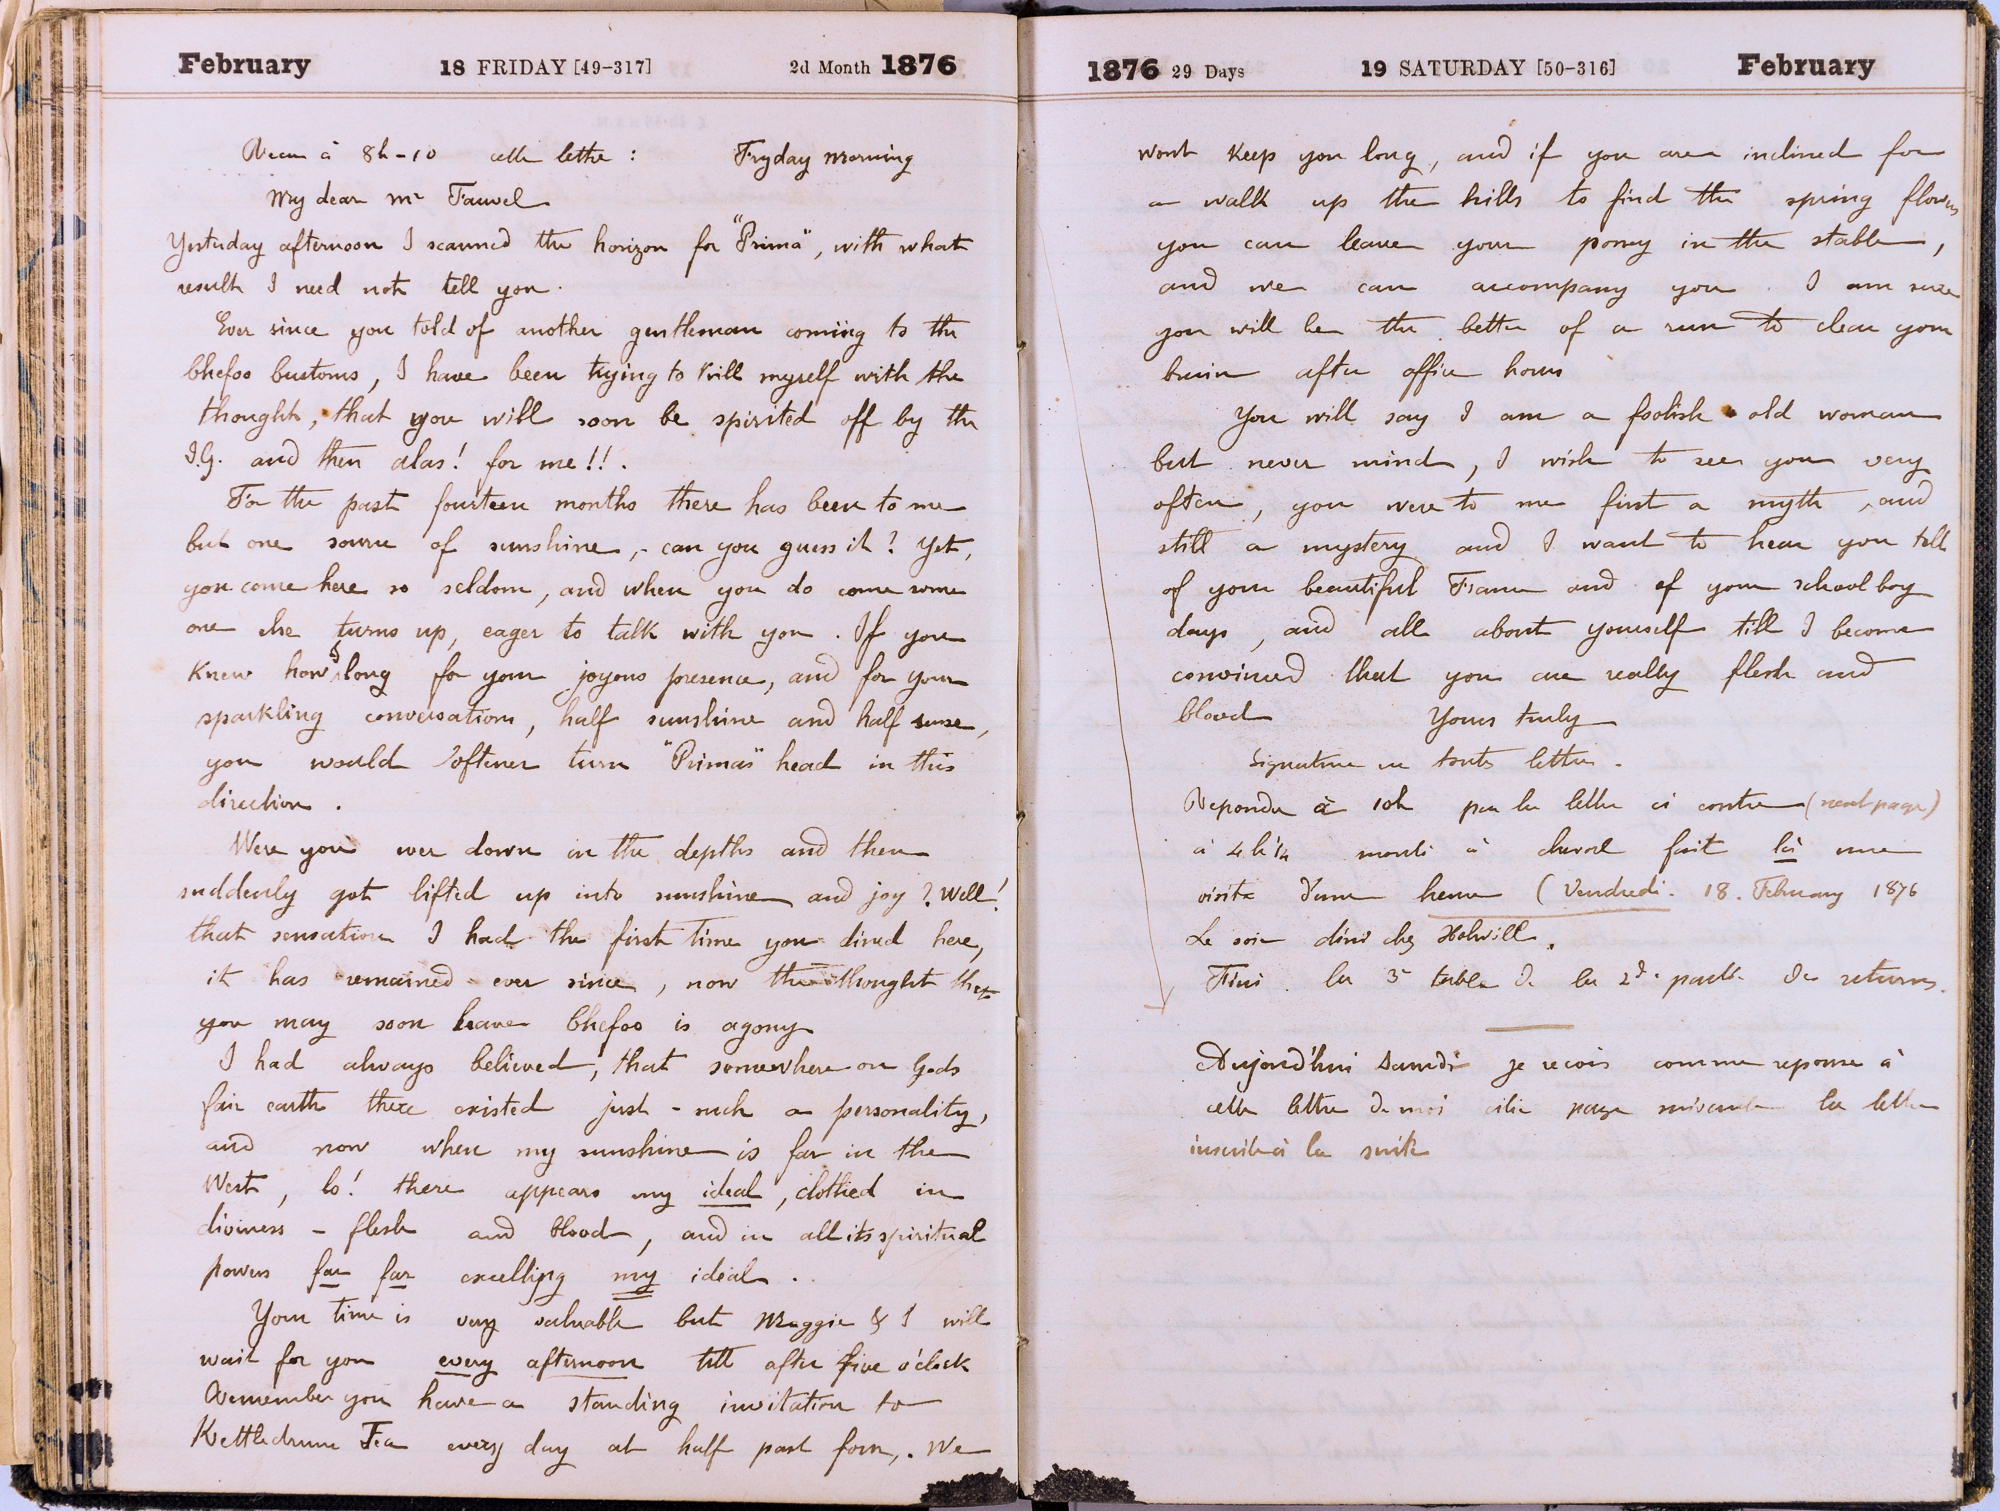 February 18 FRIDAY [49-317] 2d Month 1876
Recu à 8h-10 cette lettre : Fryday morning
My dear Mr Fauvel
Yesterday afternoon I scanned the horizon for "Prima", with what
result I need not tell you.
Ever since you told of another gentleman coming to the
Chefoo Customs, I have been trying to kill myself with the
thought, that you will soon be spirited off by the
I.G. and then alas! for me!!.
For the past fourteen months there has been to me
but one source of sunshine, - can you guess it? Yet,
you come here so seldom, and when you do come some
one else turns up, eager to talk with you. If you
knew how I long for your joyous presence, and for your
sparkling conversation, half sunshine and half sense,
you would oftener turn "Primas" head in this
direction.
Were you ever down in the depths and then
suddenly got lifted up into sunshine and joy? Well!
that sensation I had the first time you dined here,
it has remained ever since, now the thought that
you may soon leave Chefoo is agony
I had always believed, that somewhere on Gods
fair earth there existed just - such a personality,
and now when my sunshine is far in the
West, lo! there appears my ideal, clothed in
diviness - flesh and blood, and in all its spiritual
powers far far excelling my ideal.
Your time is very valuable but Maggie & I will
wait for you every afternoon till after five o'clock
Remember you have a standing invitation to
Kettledrum Tea every day at half past four,. We
1876 29 Days 19 SATURDAY [50-316] February
wont keep you long, and if you are inclined for
a walk up the hills to find the spring flowers
you can leave your poney in the stable,
and we can accompany you. I am sure
you will be the better of a run to clear your
brain after office hours
You will say I am a foolish old woman
but never mind, I wish to see you very
often, you were to me first a myth, and
still a mystery and I want to hear you tell
of your beautiful France and of your schoolboy
days, and all about yourself till I become
convinced that you are really flesh and
blood Yours truly
Signature en toutes lettres.
Repondu à 10h par la lettre ci contre (next page)
à 4h 1/4 monté à cheval fait là une
visite d'une heure (Vendredi. 18. February 1876
Le soir diné chez Holwill.
Fini la 3e table de la 2de partie des returns.
Aujourd'hui Samedi je recois comme reponse à
cette lettre de moi citée page suivante la lettre
inscrite à la suite